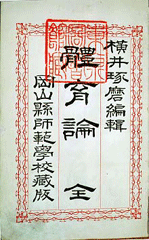 横井琢磨編輯
體育論 全
岡山縣師範學校藏版